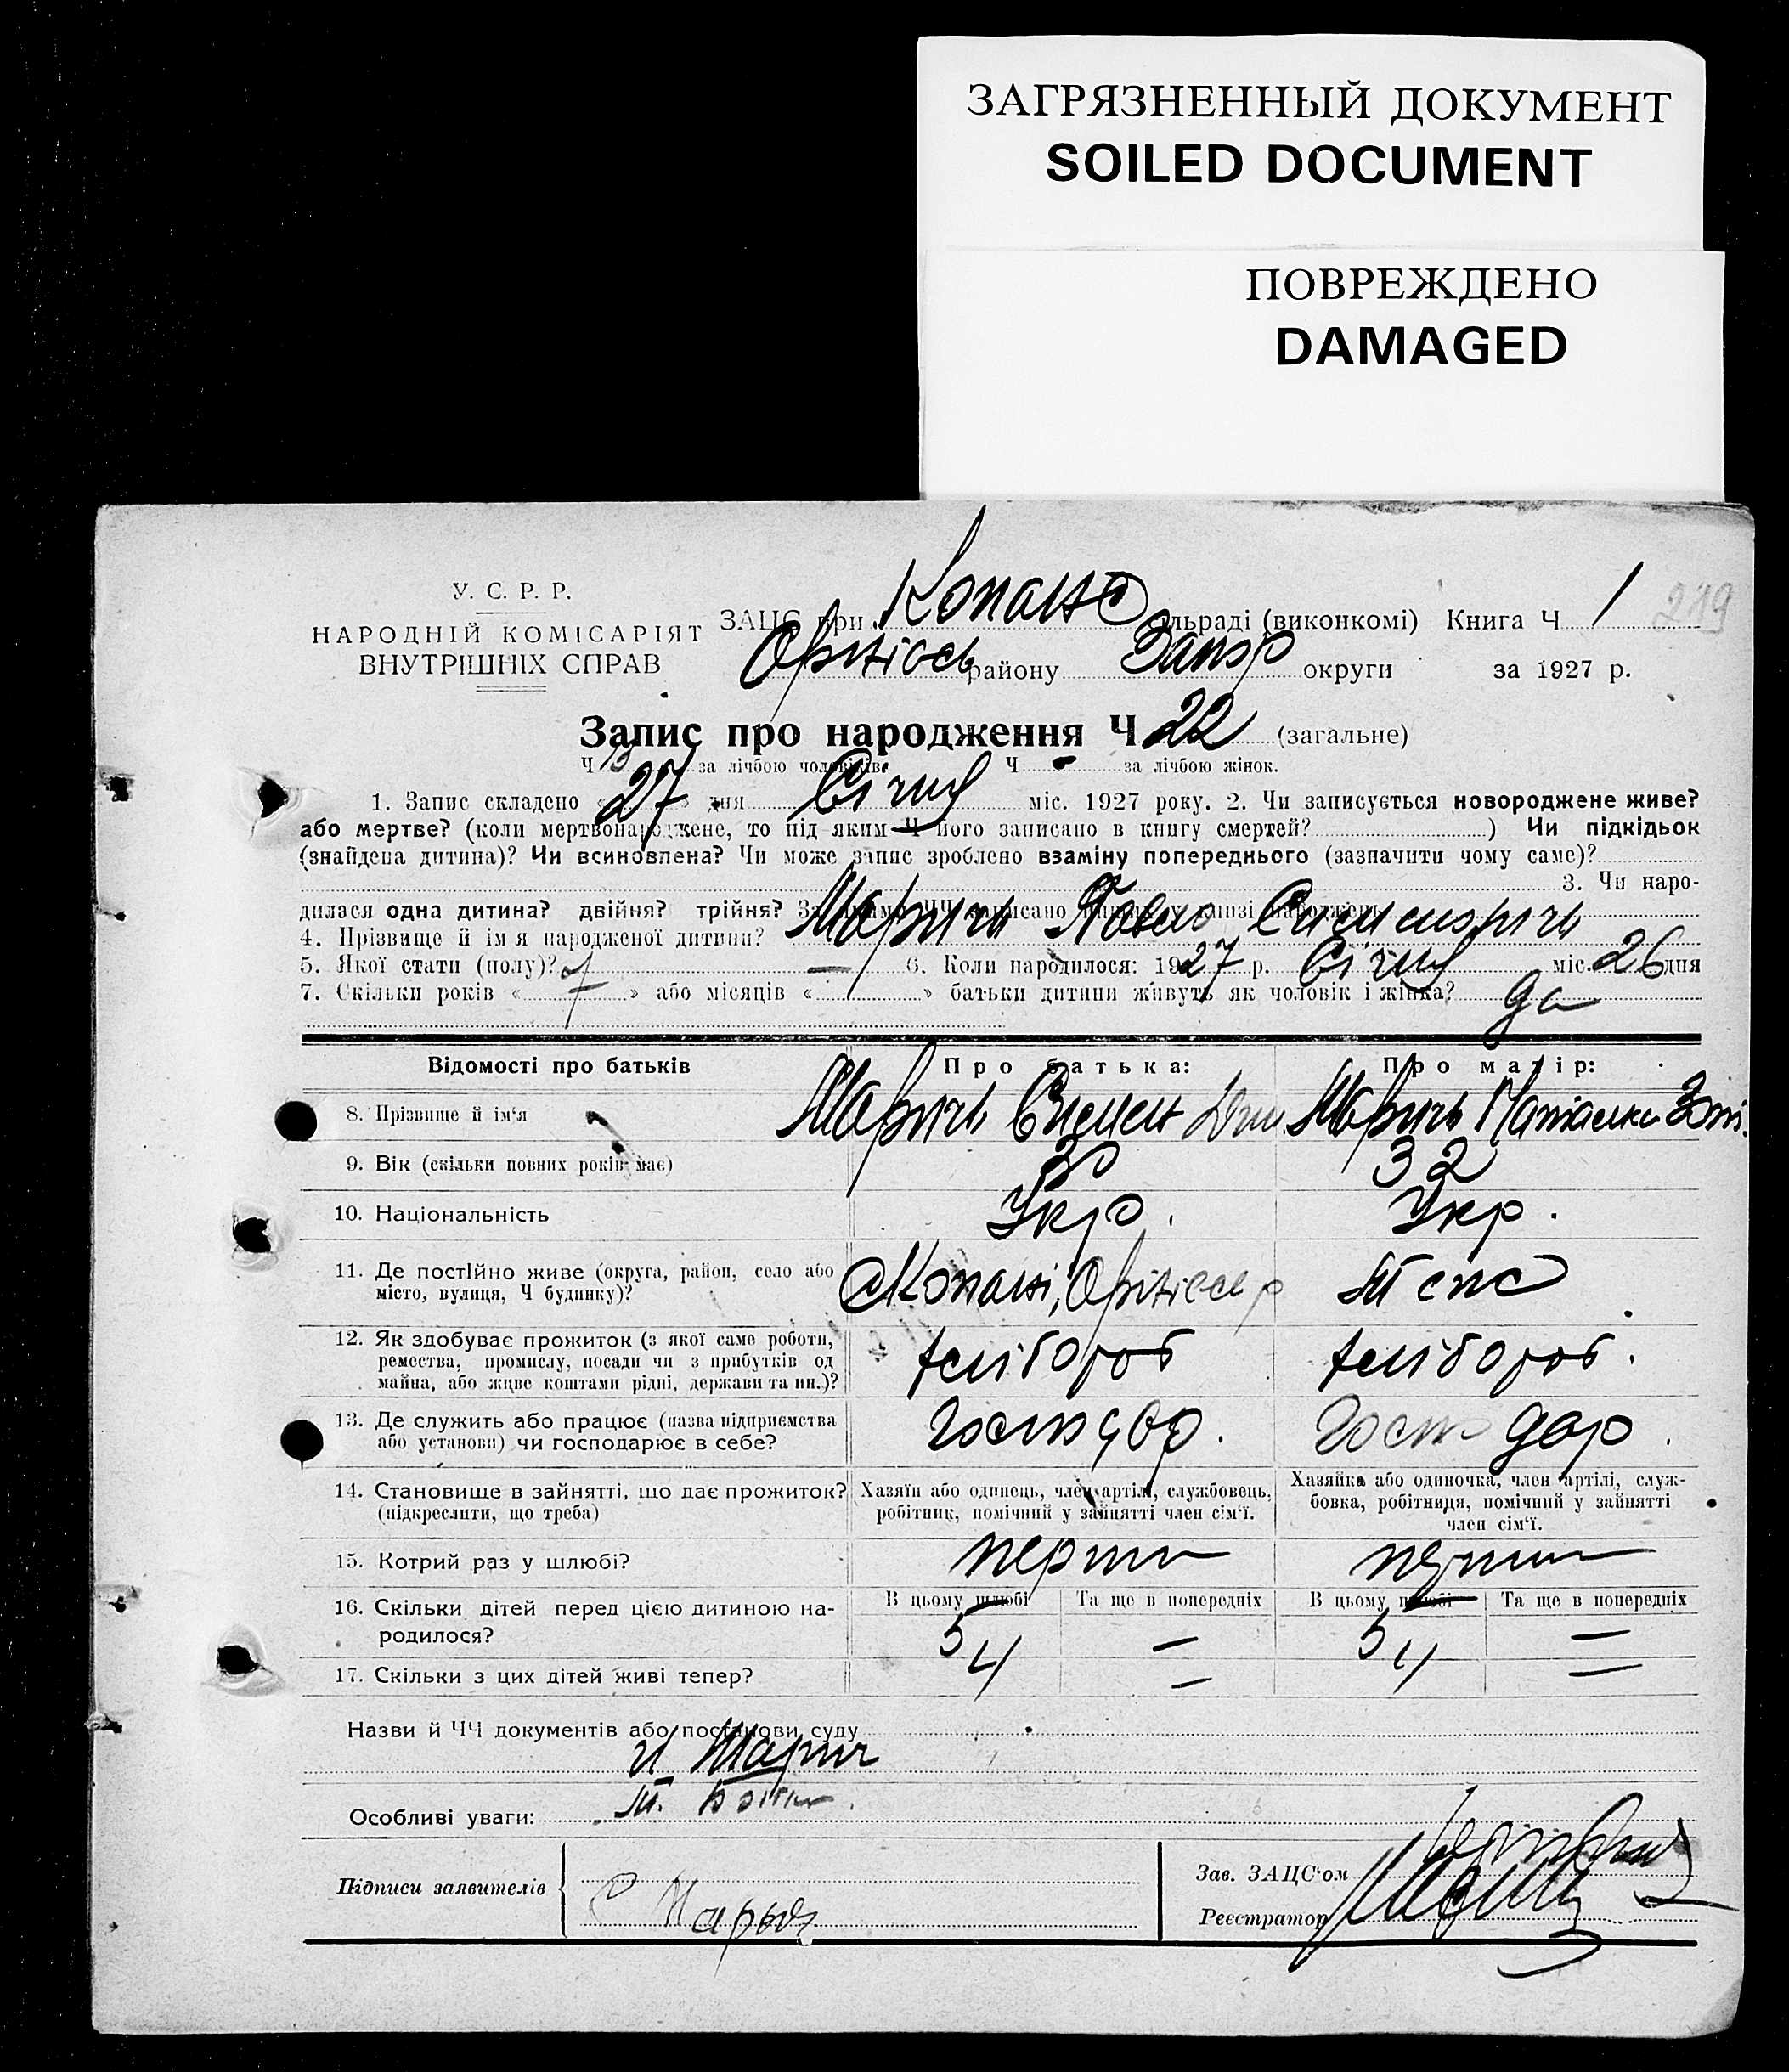 ЗАГРЯЗНЕННЫЙ ДОКУМЕНТ
SOILED DOCUMENT
ПОВРЕЖДЕНО
DAMAGED
У. С. Р. Р.
НАРОДНІЙ КОМІСАРІЯТ
ВНУТРІШНІХ СПРАВ
ЗАЦС при сільраді (виконкомі) Книга Ч 1 219
району Запор округи за 1927 р.
Запис про народження Ч 22 (загальне)
Ч 13 за лічбою чоловіків. Ч - за лічбою жінок.
1. Запис складено « 27 » дня Січня міс. 1927 року. 2. Чи записується новороджене живе?
або мертве? (коли мертвонароджене, то під яким Ч його записано в книгу смертей? ) Чи підкідьок
(знайдена дитина)? Чи всиновлена? Чи може запис зроблено взаміну попереднього (зазначити чому саме)?
3. Чи наро-
дилася одна дитина? двійня? трійня? За якими ЧЧ записано
4. Прізвище й ім'я народженої дитини? Марич Павло
5. Якої стати (полу)? ч — 6. Коли народилося: 1927 р. Січня міс. 26 дня
7. Скільки років « » або місяців « » батьки дитини живуть як чоловік і жінка? да
Відомості про батьків Про батька: Про матір:
8. Прізвище й ім'я Маричь Семен Маричь
9. Вік (скільки повних років має) 32
10. Національність Укр. Укр.
11. Де постійно живе (округа, район, село або Копані, теж
місто, вулиця, Ч будинку)?
12. Як здобуває прожиток (з якої саме роботи,
ремества, промислу, посади чи з прибутків од хлібороб хлібороб.
майна, або живе коштами рідні, держави та ин.)?
13. Де служить або працює (назва підприємства Господар. Господар.
або установи) чи господарює в себе?
14. Становище в зайнятті, що дає прожиток? Хазяїн або одинець, член артілі, службовець, Хазяйка або одиночка, член артілі, служ-
(підкреслити, що треба) робітник, помічний у зайнятті член сім'ї. бовка, робітниця, помічний у зайнятті
член сім'ї.
15. Котрий раз у шлюбі? перши перши
16. Скільки дітей перед цією дитиною на- В цьому шлюбі Та ще в попередніх В цьому шлюбі Та ще в попередніх
родилося? 5 — 5 —
17. Скільки з цих дітей живі тепер? 4 — 4 —
Назви й ЧЧ документів або постанови суду
Марич
Особливі уваги:
Підписи заявителів С Марыч
Зав. ЗАЦС'ом
Реєстратор